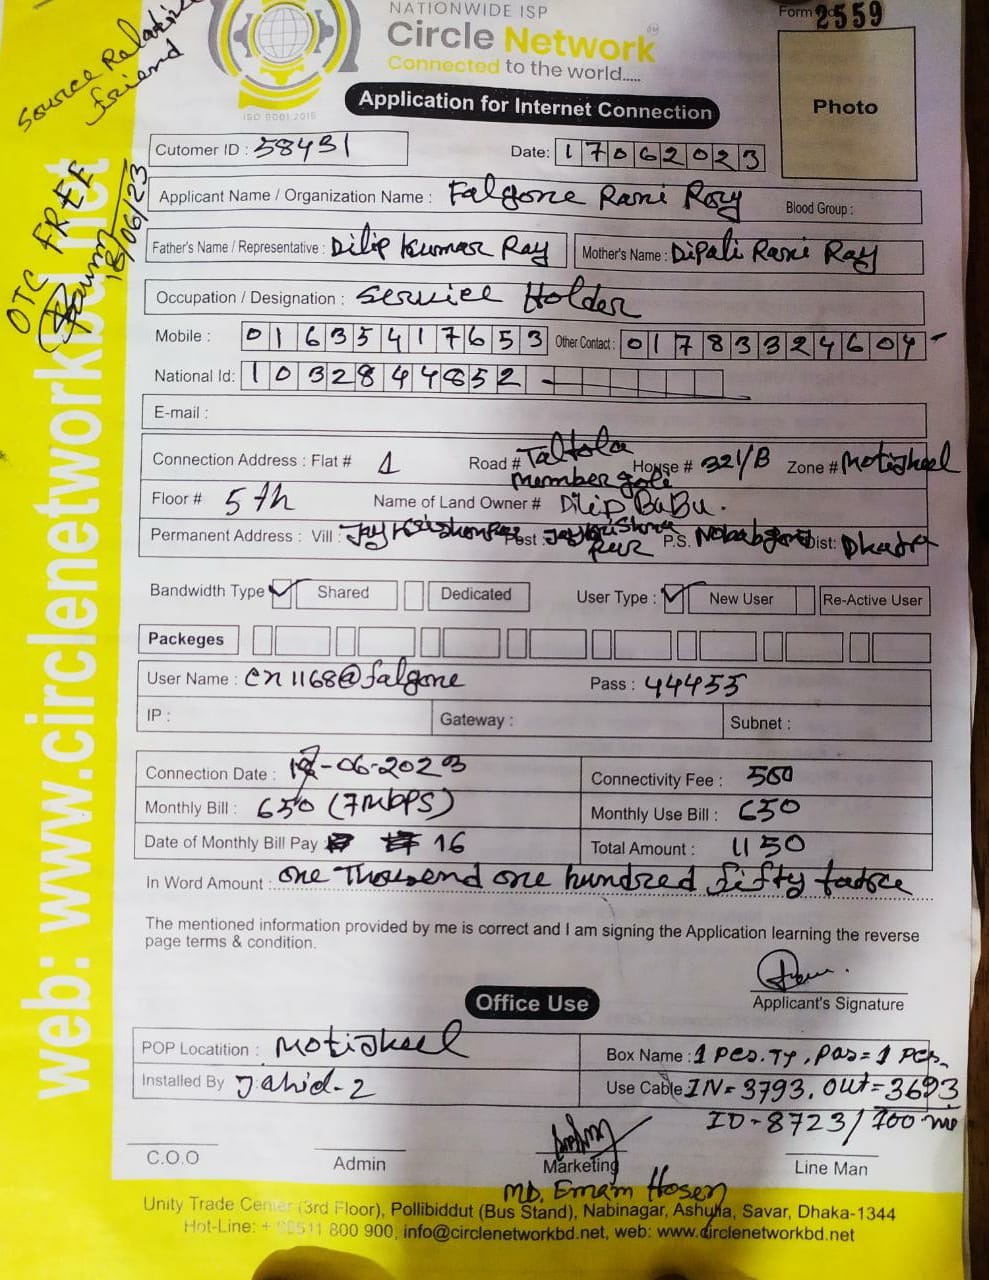 Source Relative
friend
OTC FREE
18/06/23
NATIONWIDE ISP
Circle Network
Connected to the world.....
ISO 9001:2015
Form No 2559
Application for Internet Connection
Photo
Cutomer ID : 58431
Date: 17062023
Applicant Name / Organization Name : Falgone Rani Roy
Blood Group :
Father's Name / Representative : Dilip Kumar Ray
Mother's Name : Dipali Rani Ray
Occupation / Designation : Service Holder
Mobile : 01635417653 Other Contact : 01783324604
National Id: 1032844852
E-mail :
Connection Address : Flat # 1 Road # Taltola Member goli House # 321/B Zone # Motijheel
Floor # 5th Name of Land Owner # Dilip BaBu.
Permanent Address : Vill : Post : Jaykrishna Pur P.S. Dist: Dhaka
Bandwidth Type Shared Dedicated User Type : New User Re-Active User
Packeges
User Name : cn1168@falgone Pass : 44455
IP : Gateway : Subnet :
Connection Date : -06-2023 Connectivity Fee : 500
Monthly Bill : 650 (7Mbps) Monthly Use Bill : 650
Date of Monthly Bill Pay 16 Total Amount : 1150
In Word Amount : One Thousend one hundred fifty
The mentioned information provided by me is correct and I am signing the Application learning the reverse
page terms & condition.
Applicant's Signature
Office Use
POP Locatition : Motijheel Box Name : 1 Pcs. Tj, Pas = 1 Pcs.
Installed By Jahid-2 Use Cable IN = 3793, Out = 3693
ID - 8723/100 m
C.O.O Admin Marketing Line Man
MD. Emam Hosen
Unity Trade Center (3rd Floor), Pollibiddut (Bus Stand), Nabinagar, Ashulia, Savar, Dhaka-1344
Hot-Line: + 09611 800 900, info@circlenetworkbd.net, web: www.circlenetworkbd.net
web: www.circlenetworkbd.net